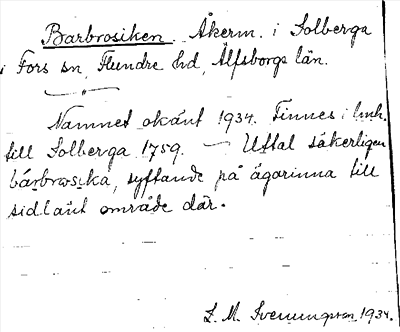 Barbrosiken. Åkerm. i Solberga
i Fors sn, Flundre hd, Älfsborgs län.
Namnet okänt 1934. Finnes i lmh.
till Solberga 1759. — Uttal säkerligen
bárbrosika, syftande på ägarinna till
sidlänt område där.
L. M. Svenungsson 1934.